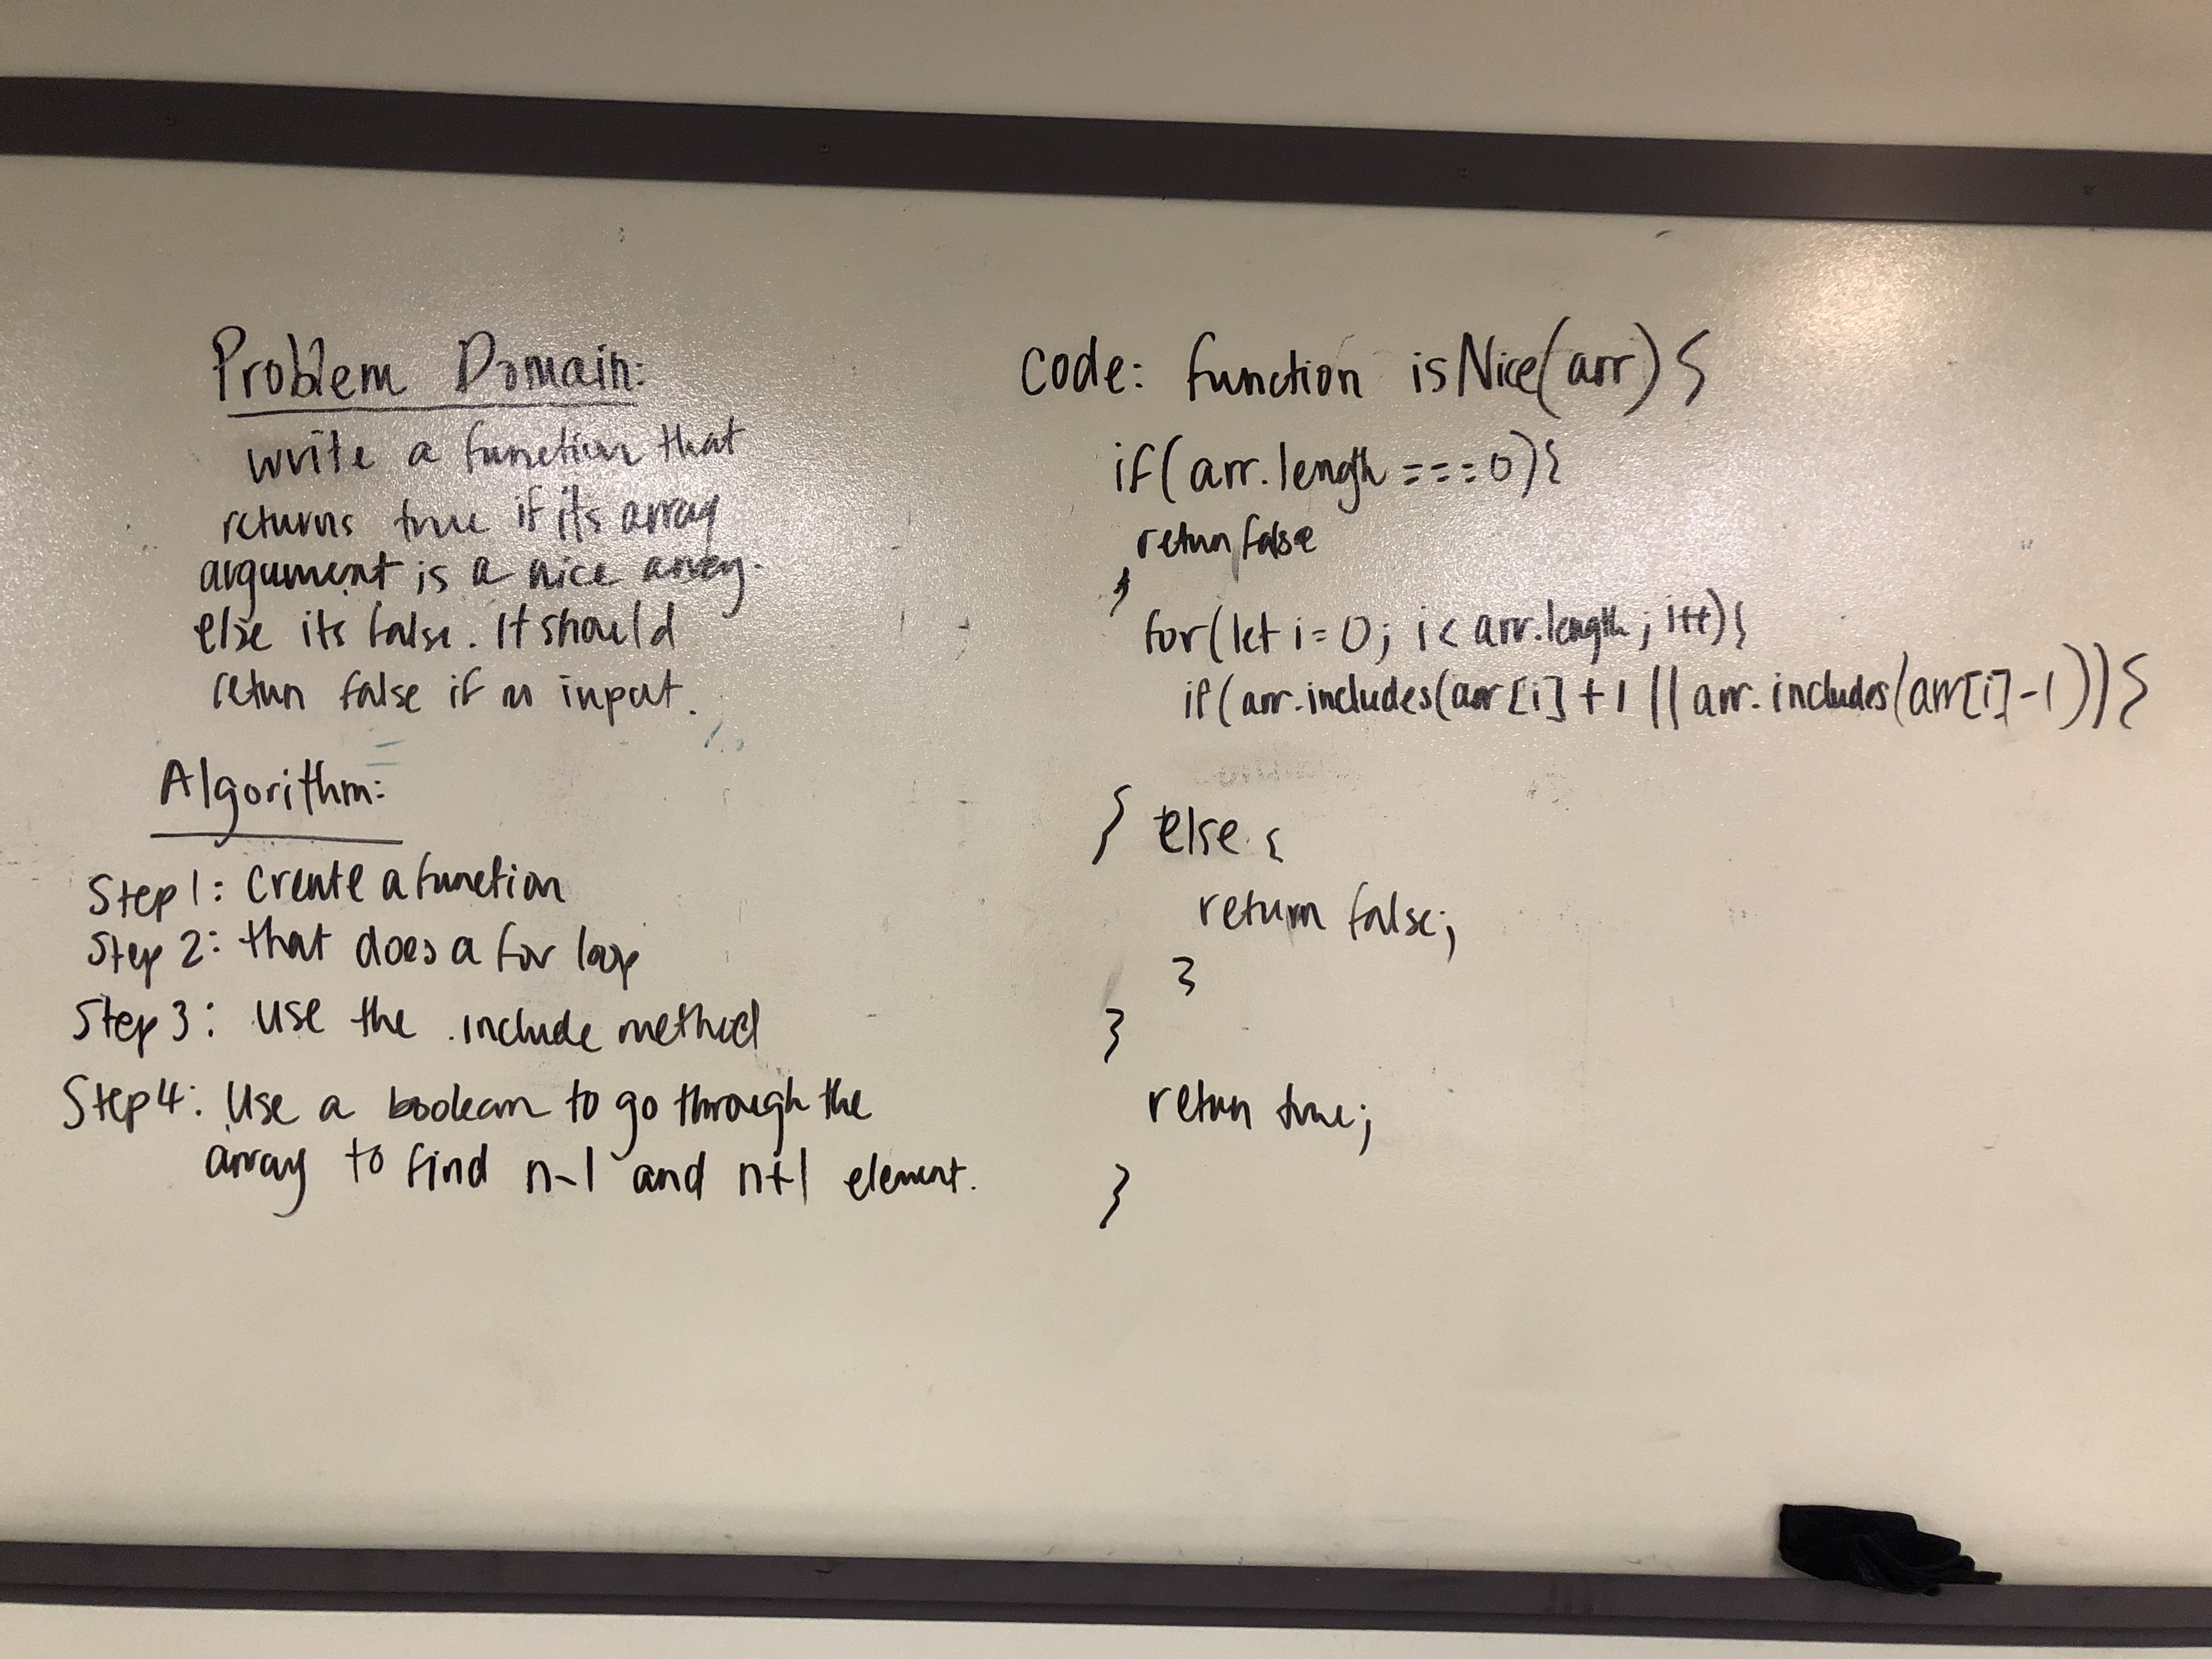 Problem Domain:
write a function that
returns true if its array
argument is a nice array.
else its false. It should
return false if no input.
Algorithm:
Step 1: Create a function
Step 2: that does a for loop
Step 3: Use the .include method
Step 4: Use a boolean to go through the
array to find n-1 and n+1 element.
Code: function isNice(arr) {
if(arr.length === 0){
return false
}
for(let i=0; i < arr.length; i++){
if(arr.includes(arr[i]+1 || arr.includes(arr[i]-1)){
} else {
return false;
}
}
return true;
}